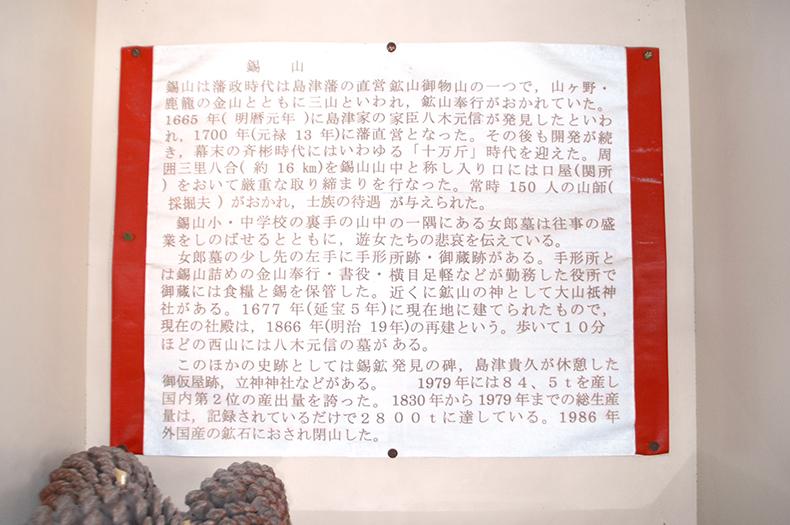 錫　山
錫山は藩政時代は島津藩の直営鉱山御物山の一つで，山ヶ野・
鹿籠の金山とともに三山といわれ，鉱山奉行がおかれていた。
1665 年( 明暦元年 )に島津家の家臣八木元信が発見したといわ
れ，1700 年(元禄 13 年)に藩直営となった。その後も開発が続
き，幕末の斉彬時代にはいわゆる「十万斤」時代を迎えた。周
囲三里八合( 約 16 ㎞)を錫山山中と称し入り口には口屋(関所
) をおいて厳重な取り締まりを行なった。常時 150 人の山師(
採掘夫 ) がおかれ，士族の待遇 が与えられた。
錫山小・中学校の裏手の山中の一隅にある女郎墓は往事の盛
業をしのばせるとともに，遊女たちの悲哀を伝えている。
女郎墓の少し先の左手に手形所跡・御蔵跡がある。手形所と
は錫山詰めの金山奉行・書役・横目足軽などが勤務した役所で
御蔵には食糧と錫を保管した。近くに鉱山の神として大山祇神
社がある。1677 年(延宝５年)に現在地に建てられたもので，
現在の社殿は，1866 年(明治 19年)の再建という。歩いて１０分
ほどの西山には八木元信の墓が ある。
このほかの史跡としては錫鉱 発見の碑，島津貴久が休憩した
御仮屋跡，立神神社などがある。　1979年には８４、５ｔを産し
国内第２位の産出量を誇った。1830年から1979年までの総生産
量は，記録されているだけで２８００ｔに達している。1986 年
外国産の鉱石におされ閉山した。